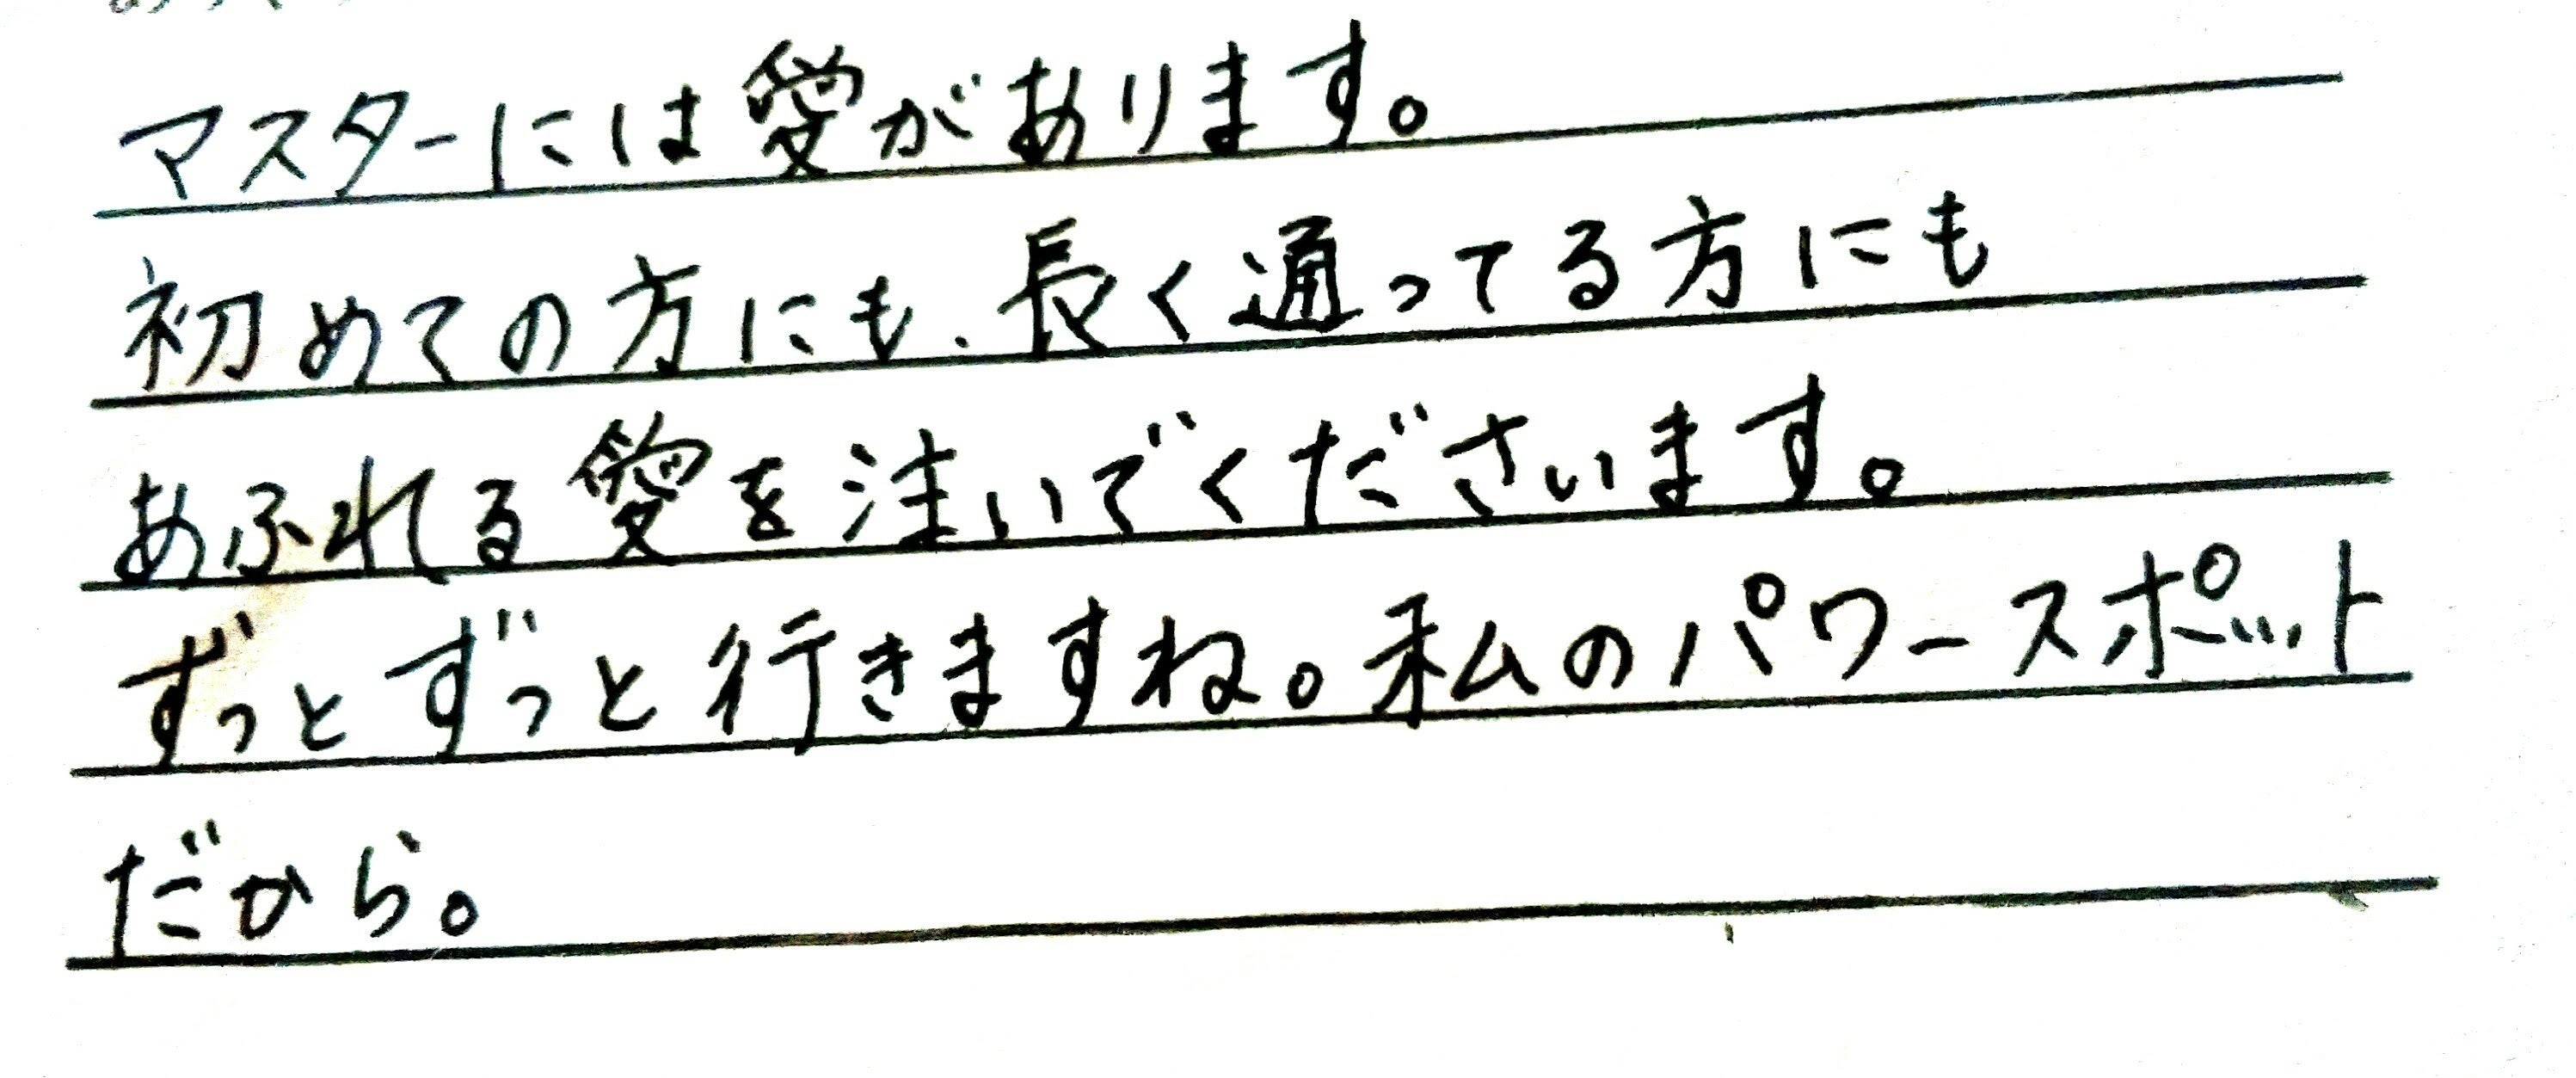 マスターには愛があります。
初めての方にも、長く通ってる方にも
あふれる愛を注いでくださいます。
ずっとずっと行きますね。私のパワースポット
だから。